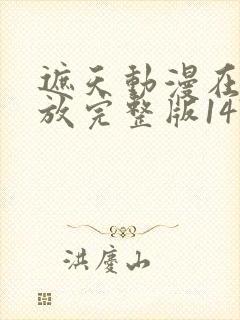 遮天動漫在
放完整版14
洪慶山